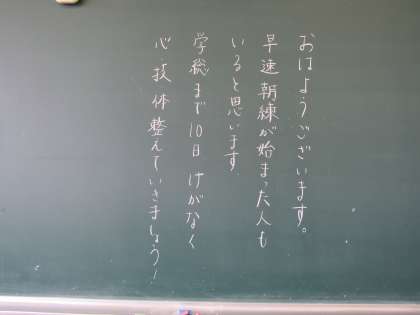 おはようございます。
早速朝練が始まった人も
いると思います
学総まで10日 けがなく
心・技・体整えていきましょう！